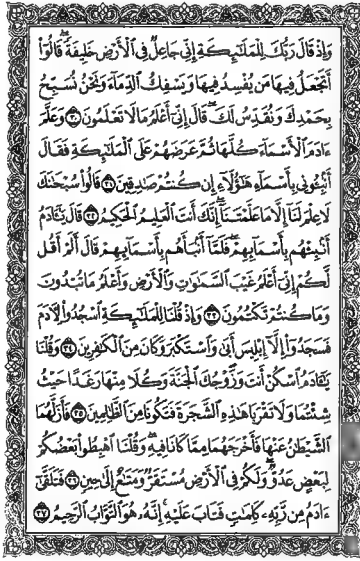 وَإِذۡ قَالَ رَبُّكَ لِلۡمَلَـٰٓئِكَةِ إِنِّى جَاعِلٌ فِى ٱلۡأَرۡضِ خَلِيفَةًۖ قَالُوٓاْ
أَتَجۡعَلُ فِيهَا مَن يُفۡسِدُ فِيهَا وَيَسۡفِكُ ٱلدِّمَآءَ وَنَحۡنُ نُسَبِّحُ
بِحَمۡدِكَ وَنُقَدِّسُ لَكَۖ قَالَ إِنِّىٓ أَعۡلَمُ مَا لَا تَعۡلَمُونَ ٣٠ وَعَلَّمَ
ءَادَمَ ٱلۡأَسۡمَآءَ كُلَّهَا ثُمَّ عَرَضَهُمۡ عَلَى ٱلۡمَلَـٰٓئِكَةِ فَقَالَ
أَنۢبِـُٔونِى بِأَسۡمَآءِ هَـٰٓؤُلَآءِ إِن كُنتُمۡ صَـٰدِقِينَ ٣١ قَالُواْ سُبۡحَـٰنَكَ
لَا عِلۡمَ لَنَآ إِلَّا مَا عَلَّمۡتَنَآۖ إِنَّكَ أَنتَ ٱلۡعَلِيمُ ٱلۡحَكِيمُ ٣٢ قَالَ يَـٰٓـَٔادَمُ
أَنۢبِئۡهُم بِأَسۡمَآئِهِمۡۖ فَلَمَّآ أَنۢبَأَهُم بِأَسۡمَآئِهِمۡ قَالَ أَلَمۡ أَقُل
لَّكُمۡ إِنِّىٓ أَعۡلَمُ غَيۡبَ ٱلسَّمَـٰوَٰتِ وَٱلۡأَرۡضِ وَأَعۡلَمُ مَا تُبۡدُونَ
وَمَا كُنتُمۡ تَكۡتُمُونَ ٣٣ وَإِذۡ قُلۡنَا لِلۡمَلَـٰٓئِكَةِ ٱسۡجُدُواْ لِأٓدَمَ
فَسَجَدُوٓاْ إِلَّآ إِبۡلِيسَ أَبَىٰ وَٱسۡتَكۡبَرَ وَكَانَ مِنَ ٱلۡكَـٰفِرِينَ ٣٤ وَقُلۡنَا
يَـٰٓـَٔادَمُ ٱسۡكُنۡ أَنتَ وَزَوۡجُكَ ٱلۡجَنَّةَ وَكُلَا مِنۡهَا رَغَدًا حَيۡثُ
شِئۡتُمَا وَلَا تَقۡرَبَا هَـٰذِهِ ٱلشَّجَرَةَ فَتَكُونَا مِنَ ٱلظَّـٰلِمِينَ ٣٥ فَأَزَلَّهُمَا
ٱلشَّيۡطَـٰنُ عَنۡهَا فَأَخۡرَجَهُمَا مِمَّا كَانَا فِيهِۖ وَقُلۡنَا ٱهۡبِطُواْ بَعۡضُكُمۡ
لِبَعۡضٍ عَدُوٌّۖ وَلَكُمۡ فِى ٱلۡأَرۡضِ مُسۡتَقَرٌّ وَمَتَـٰعٌ إِلَىٰ حِينٍ ٣٦ فَتَلَقَّىٰٓ
ءَادَمُ مِن رَّبِّهِۦ كَلِمَـٰتٍ فَتَابَ عَلَيۡهِۚ إِنَّهُۥ هُوَ ٱلتَّوَّابُ ٱلرَّحِيمُ ٣٧